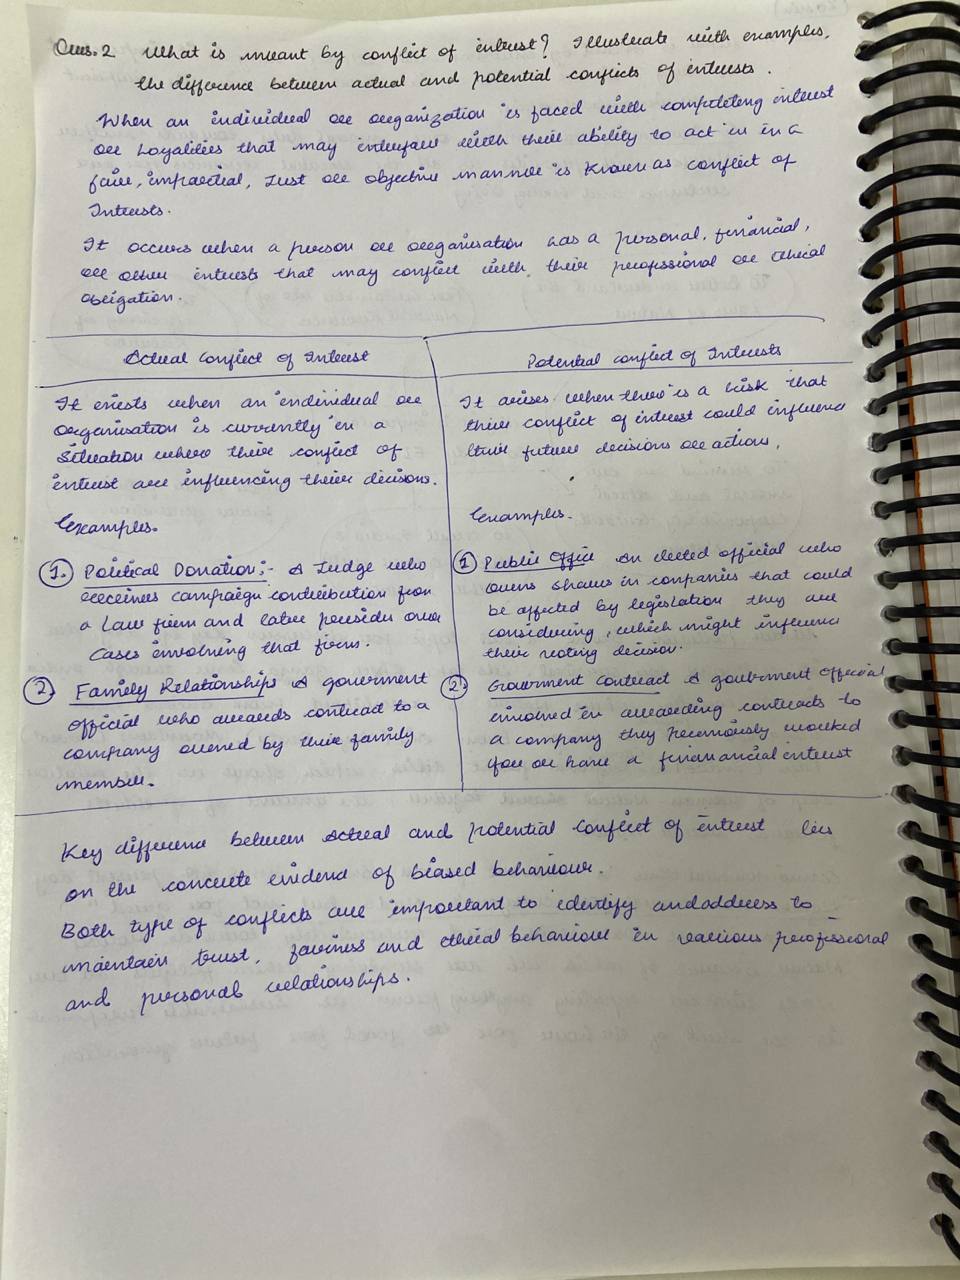 Ques.2 What is meant by conflict of interest? Illustrate with examples,
the difference between actual and potential conflicts of interests.
When an individual or organization is faced with completeing interest
or Loyalities that may interfare with their ability to act in in a
fair, impartial, Just or objective manner is known as conflict of
Interests.
It occurs when a person or organisation has a personal, financial,
or other interests that may conflict with their professional or ethical
obligation.
Actual conflict of Interest
It exists when an individual or
organisation is currently in a
situation where their conflict of
interest are influencing their decisions.
Examples.
1. Political Donation:- A Judge who
receives campaign contribution from
a Law firm and later presides over
cases involving that firm.
2. Family Relationships A goverment
official who awards contract to a
company owned by their family
member.
Potential conflict of Interests
It arises when there is a risk that
their conflict of interest could influence
their future decisions or actions,
Examples.
1 Public Office An elected official who
owns shares in companies that could
be affected by legislation they are
considering, which might influence
their voting decision.
2. Goverment Contract A government official
involved in awarding contracts to
a company they previously worked
for or have a finanancial interest
Key difference between actual and potential conflict of interest lies
on the concrete evidence of biased behaviour.
Both type of conflicts are important to identify and address to
maintain trust, fairness and ethical behaviour in various professional
and personal relationships.